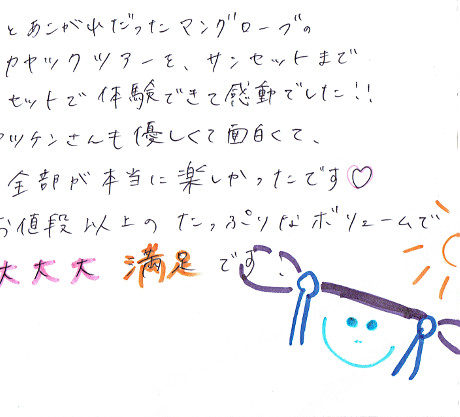 とあこがれだったマングローブの
カヤックツアーを、サンセットまで
セットで体験できて感動でした!!
ツケンさんも優しくて面白くて、
全部が本当に楽しかったです♡
お値段以上のたっぷりなボリュームで
大大大 満足 です。